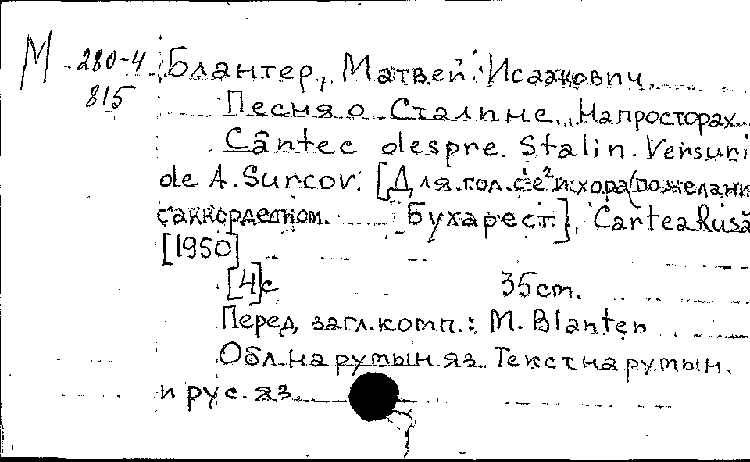 М 280-4 Блантер, Матвей Исаакович
815 Песня о Сталине. На просторах
Cântec despre Stalin. Versuri
de A. Surcov. [Для гол. c-e² и хора (по желани
с аккордеоном. Бухарест], Cartea Rusă
[1950]
[4]с 35cm.
Перед загл. комп.: M. Blanten
Обл. на румын. яз. Текст на румын.
и рус. яз.